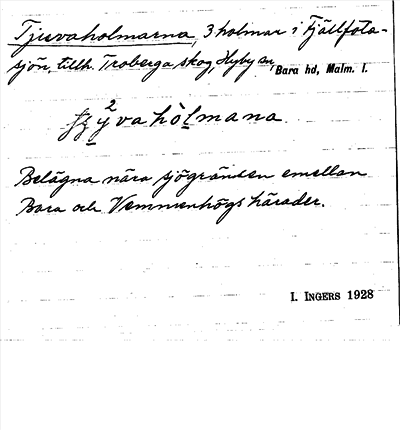 Tjuvaholmarna, 3 holmar i Fjällfota-
sjön, tillh. Troberga skog, Hyby sn, Bara hd, Malm. l.
2
yva hòlmana.
Belägna nära sjögränsen emellan
Bara och Vemmenhögs härader.
I. INGERS 1928